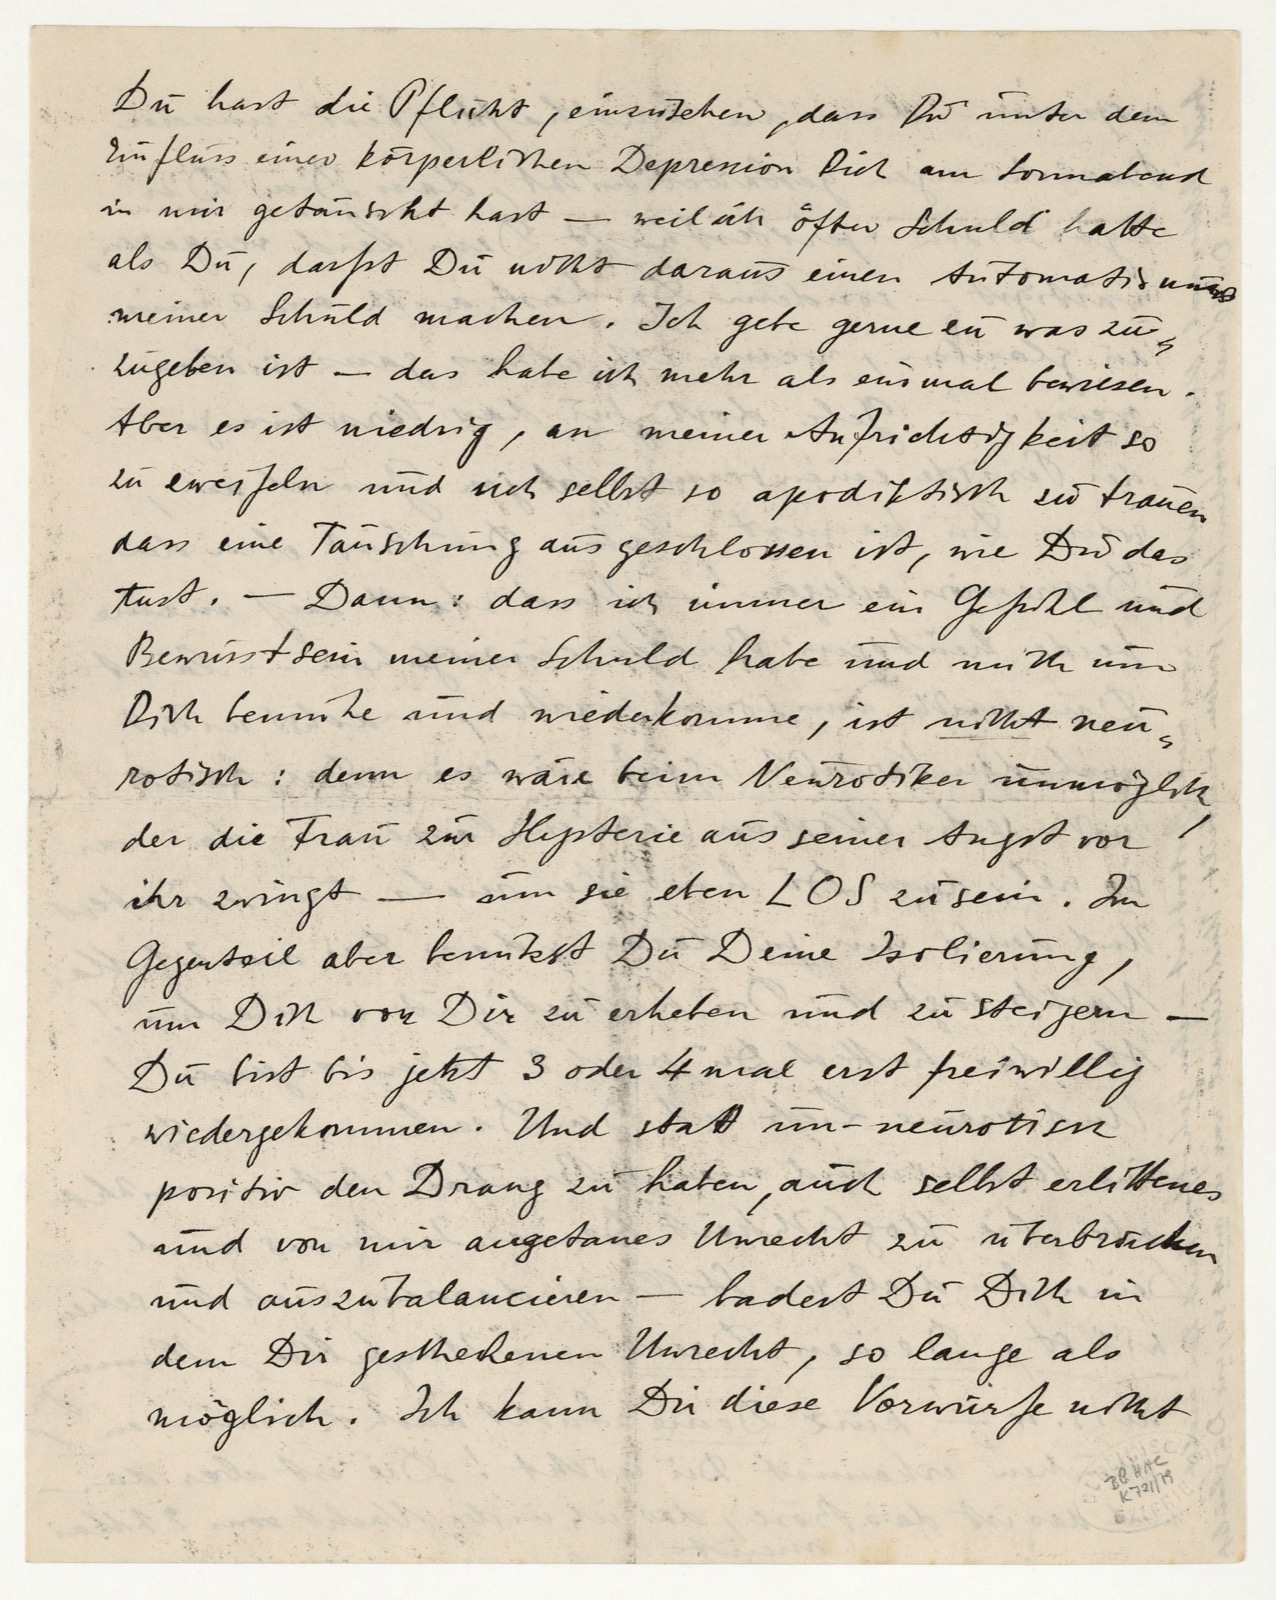 Du hast die Pflicht, einzusehen, dass Du unter dem
Einfluss einer körperlichen Depression Dich am Sonnabend
in mir getäuscht hast — weil ich öfter Schuld hatte
als Du, darfst Du nicht daraus einen Automatismus
meiner Schuld machen. Ich gebe gerne zu was zu-
zugeben ist — das habe ich mehr als einmal bewiesen.
Aber es ist niedrig, an meiner Aufrichtigkeit so
zu zweifeln und sich selbst so apodiktisch zu trauen
dass eine Täuschung ausgeschlossen ist, wie Du das
tust. — Dann: dass ich immer ein Gefühl und
Bewusstsein meiner Schuld habe und mich um
Dich bemühe und wiederkomme, ist nicht neu-
rotisch: denn es wäre beim Neurotiker unmöglich,
der die Frau zur Hysterie aus seiner Angst vor
ihr zwingt — um sie eben LOS zu sein. Im
Gegenteil aber benützt Du Deine Isolierung,
um Dich vor Dir zu erheben und zu steigern —
Du bist bis jetzt 3 oder 4 mal erst freiwillig
wiedergekommen. Und statt un-neurotisch
positiv den Drang zu haben, auch selbst erlittenes
und von mir angetanes Unrecht zu überbrücken
und auszubalancieren — badest Du Dich in
dem Dir geschehenen Unrecht, so lange als
möglich. Ich kann Dir diese Vorwürfe nicht
BG HHC
K 721/79